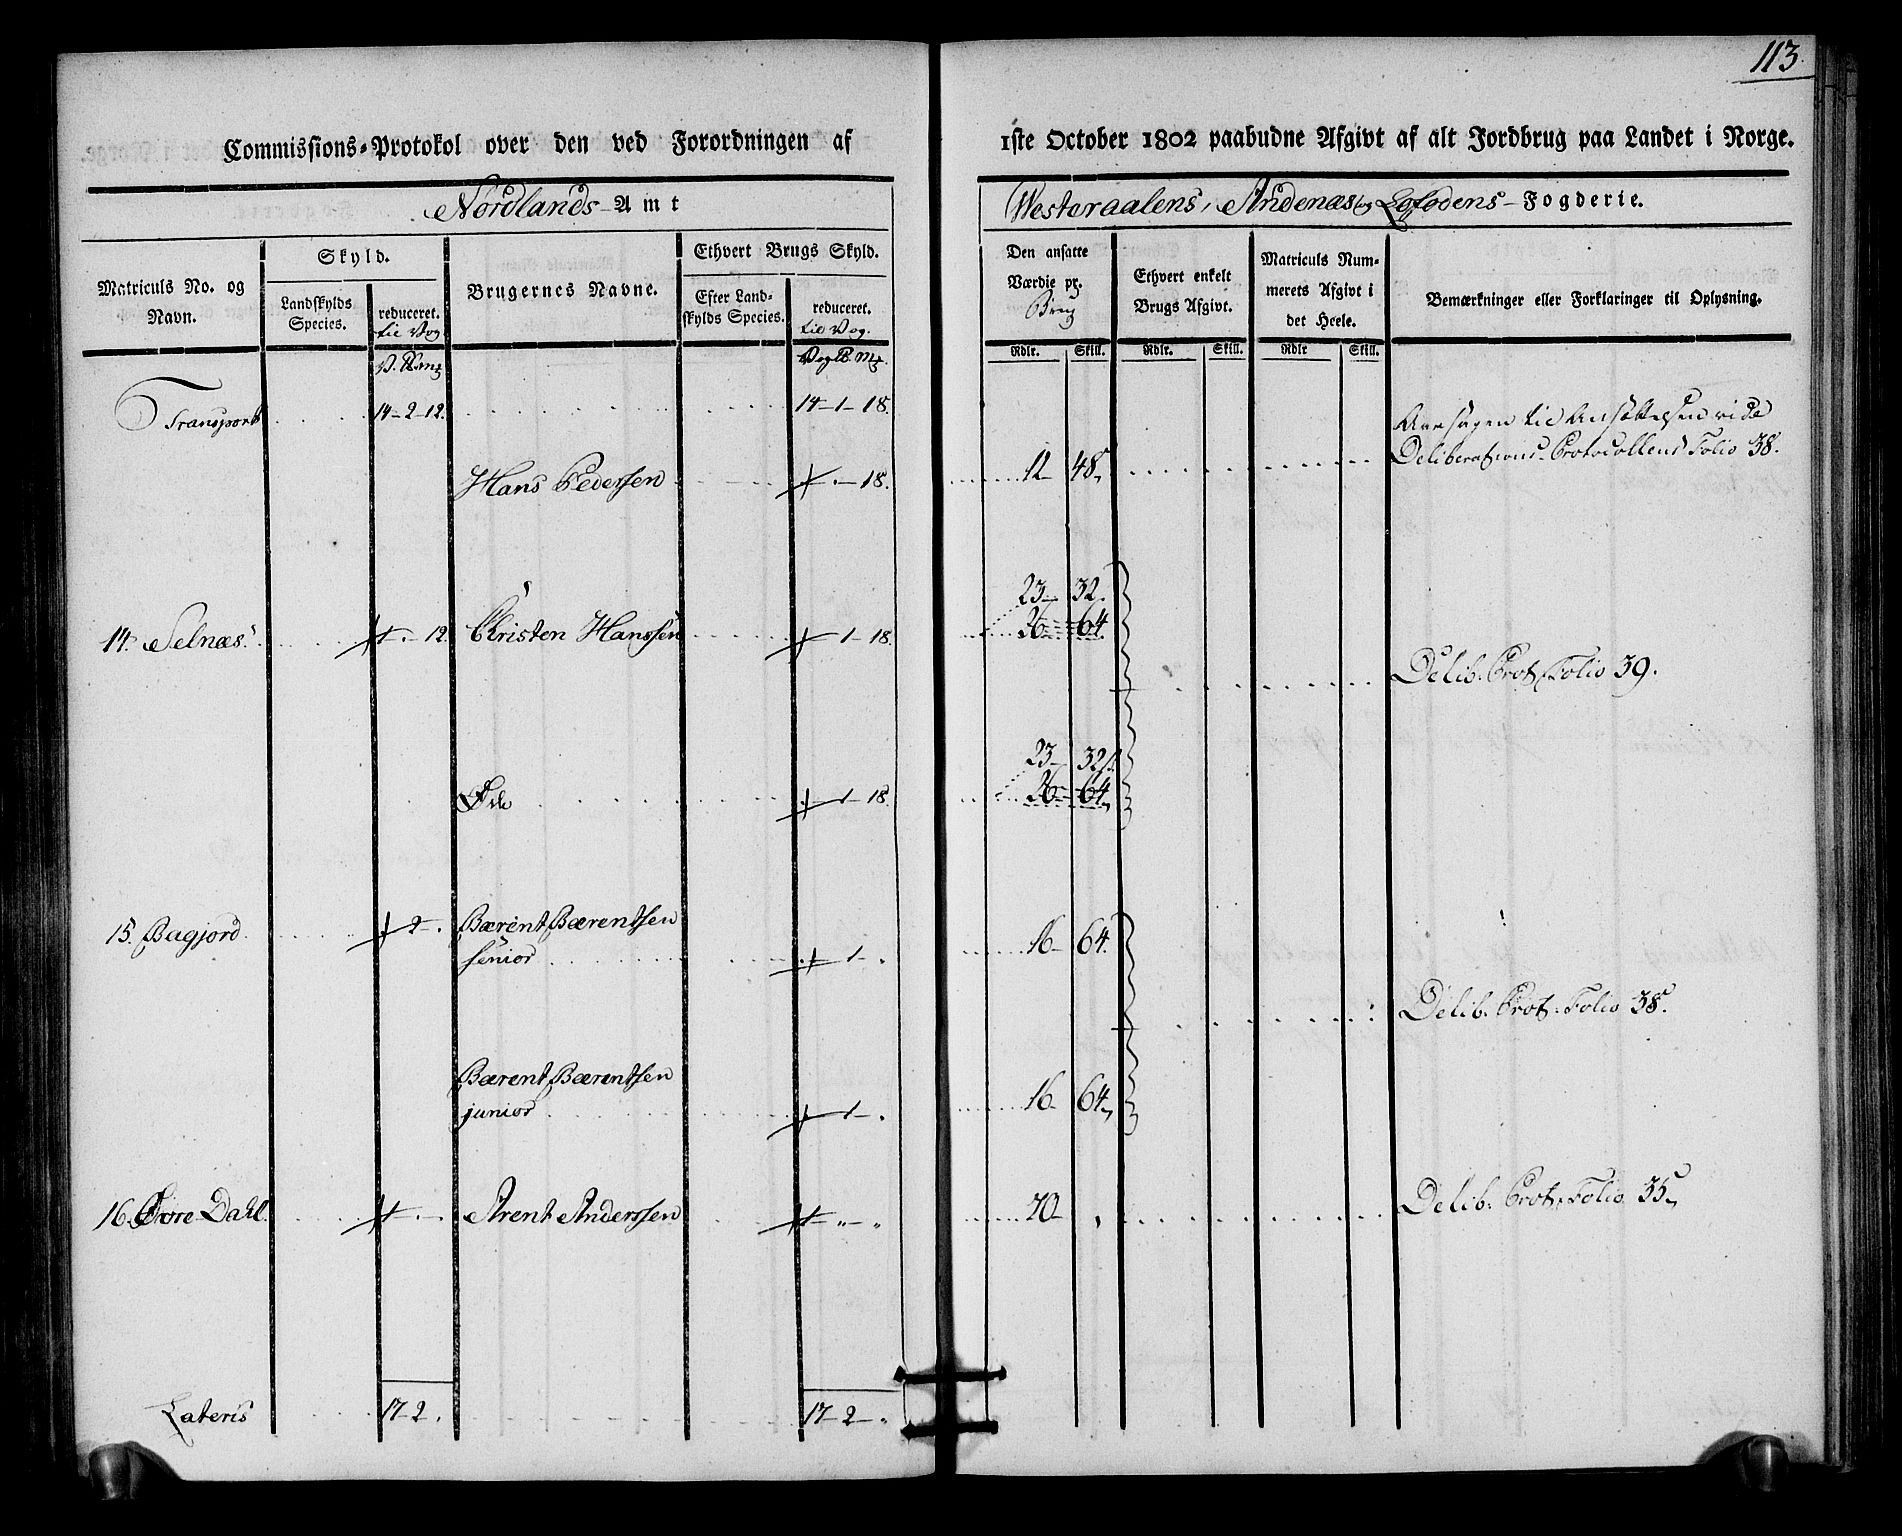 113.
Commissions-Protokol over den ved Forordningen af 1ste October 1802 paabudne Afgivt af alt Jordbrug paa Landet i Norge.
Nordlands-Amt
Westeraalens, Andenæs og Lofodens-Fogderie.
Matriculs No. og Navn.
Skyld.
Landskylds Species.
reduceret. til Vog
Brugernes Navne.
Ethvert Brugs Skyld.
Efter Landskylds Species.
reduceret. til Vog.
Den ansatte Værdie pr. Brug
Ethvert enkelt Brugs Afgivt.
Matriculs Nummerets Afgivt i det Heele.
Bemærkninger eller Forklaringer til Oplysning.
V. P. mk
Vog P. mk
Rdlr. Skill. Rdlr. Skill. Rdlr Skill.
Transport 14-2-12. 14-1-18.
Aarsagen til Ansættelsen vide
Deliberations-Protocollens Folio 38.
Hans Pedersen -18. 12 48
23- 32
14. Selnæs 1-.-12 Christen Hanssen 1-18. 26 64
Delib. Prot. Folio 39.
23- 32
Øde 1-18. 26 64
15. Bagjord 2-. Bærent Bærentsen
senior 1-. 16- 64.
Delib. Prot. Folio 38.
Bærent Bærentsen
junior 1-. 16- 64
16. Øvre-Dahl 1-.- Arent Anderssen 1-"-" 20-
Delib. Prot. Folio 35
Lateris 17-2. 17-2-.